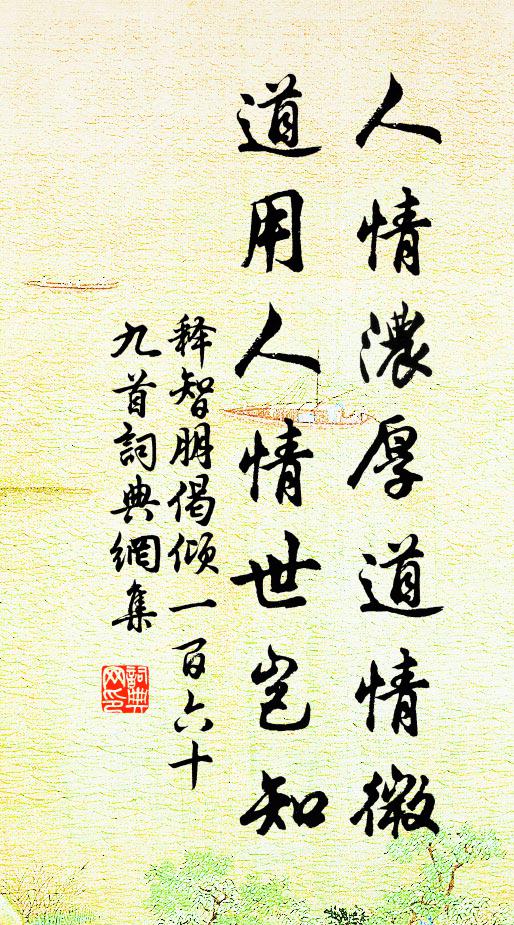 人情濃厚道情微
道用人情世岂知
释智朋偈倾一百六十
九首詞典網集
詞典网印